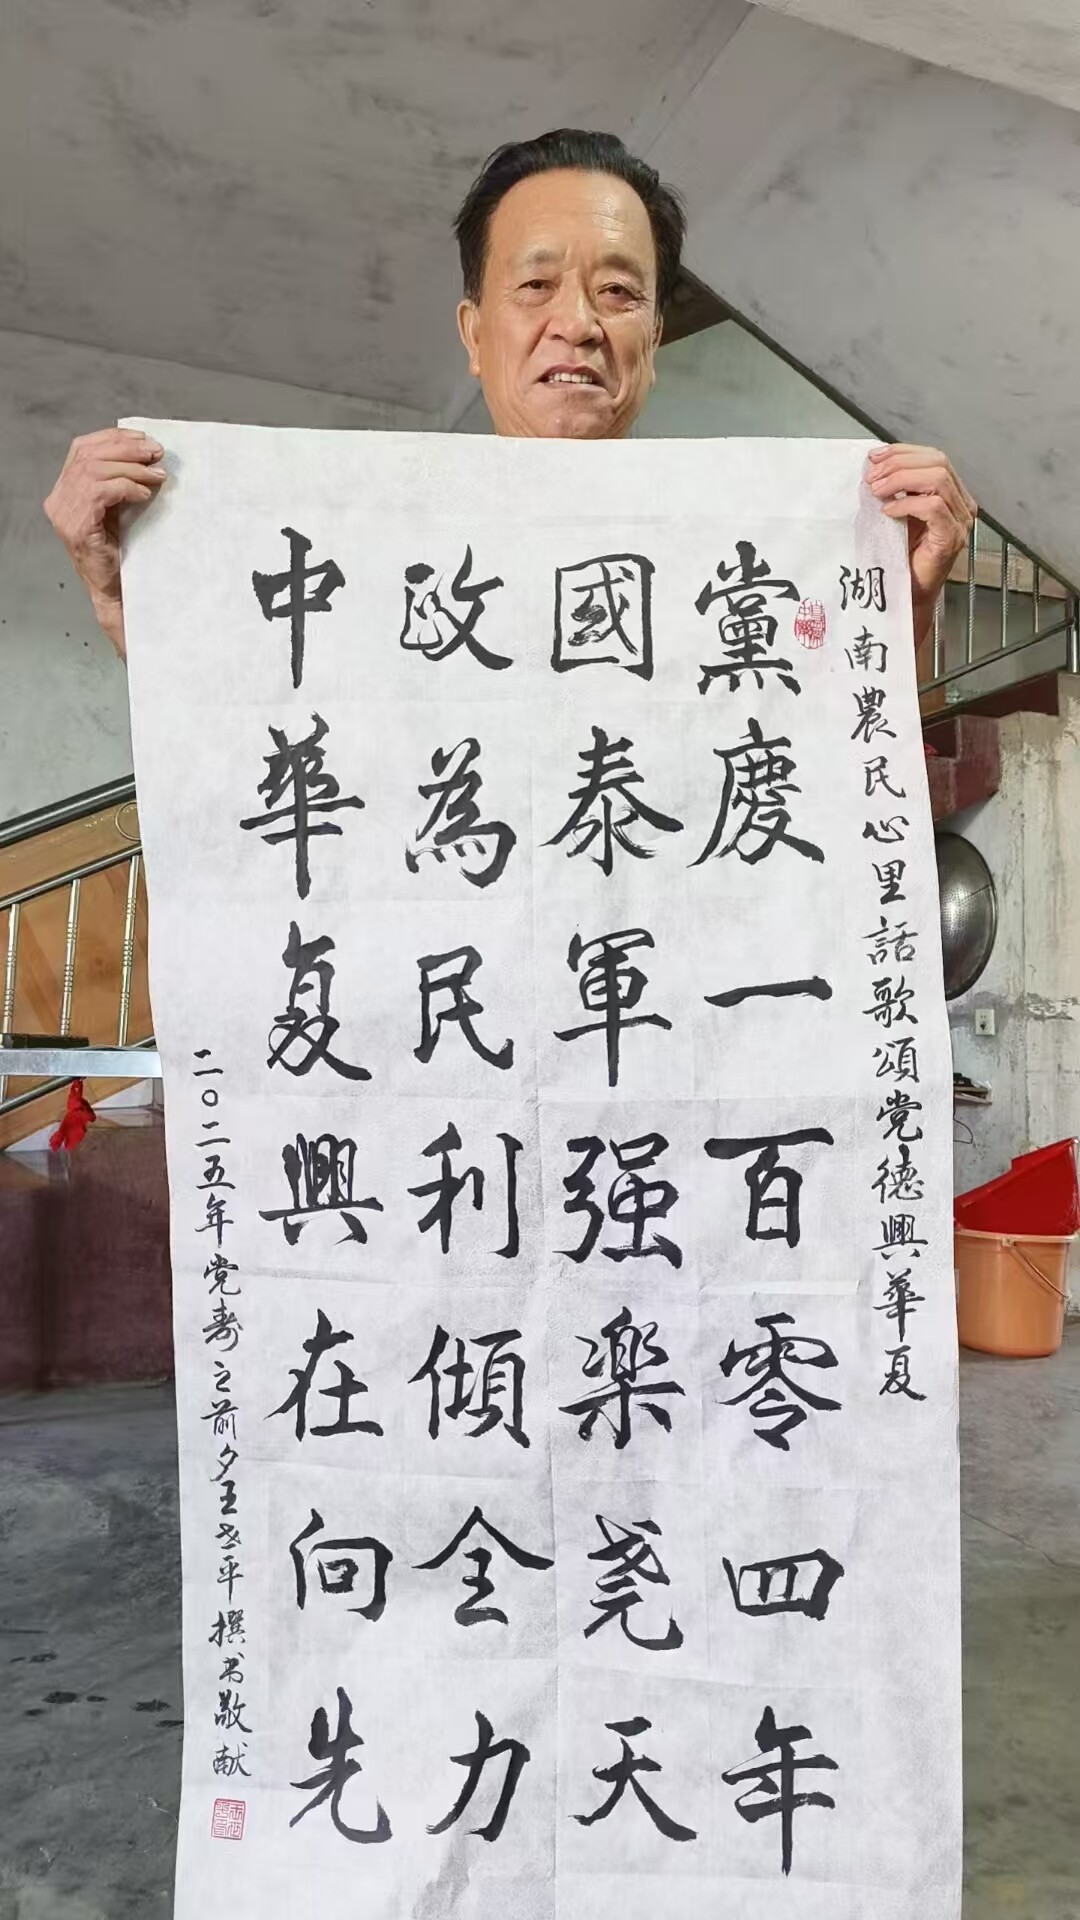 湖南農民心里話歌頌党德興華夏
黨慶一百零四年
國泰軍强楽尧天
政為民利傾全力
中華复興在向先
二〇二五年党寿之前夕王志平撰书敬献